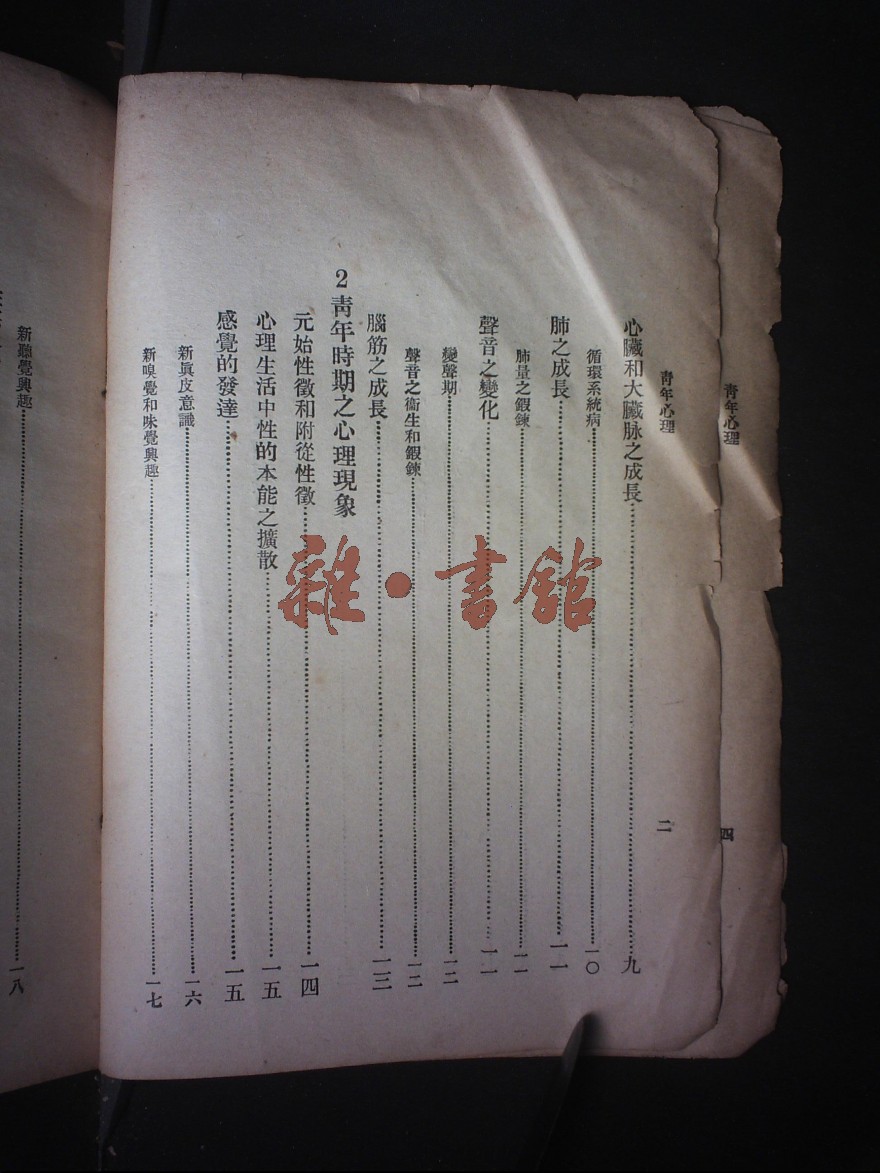 青年心理
四
青年心理
二
心臟和大臟脉之成長 九
循環系統病 一〇
肺之成長 一一
肺量之鍜鍊 一一
聲音之變化 一一
變聲期 一二
聲音之衞生和鍜鍊 一二
腦筋之成長 一三
2 靑年時期之心理現象
元始性徵和附從性徵 一四
心理生活中性的本能之擴散 一五
感覺的發達 一五
新眞皮意識 一六
新嗅覺和味覺興趣 一七
新聽覺興趣 一八
雜·書館